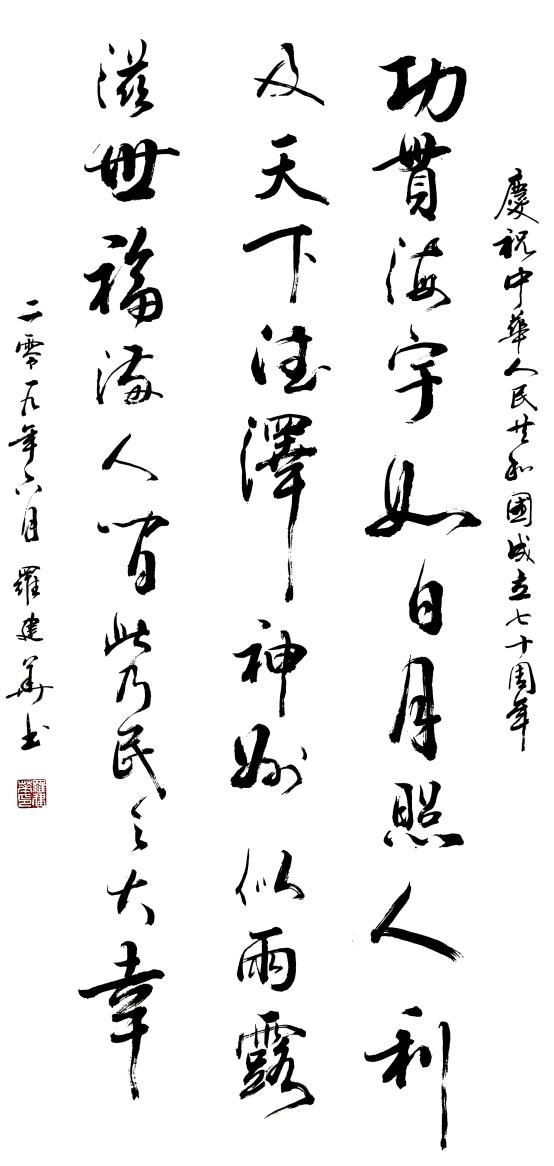 慶祝中華人民共和國成立七十周年
功貫海宇如日月照人利
及天下德澤神州似雨露
滋世福滿人間此乃民之大幸
二零一九年六月 羅建華书